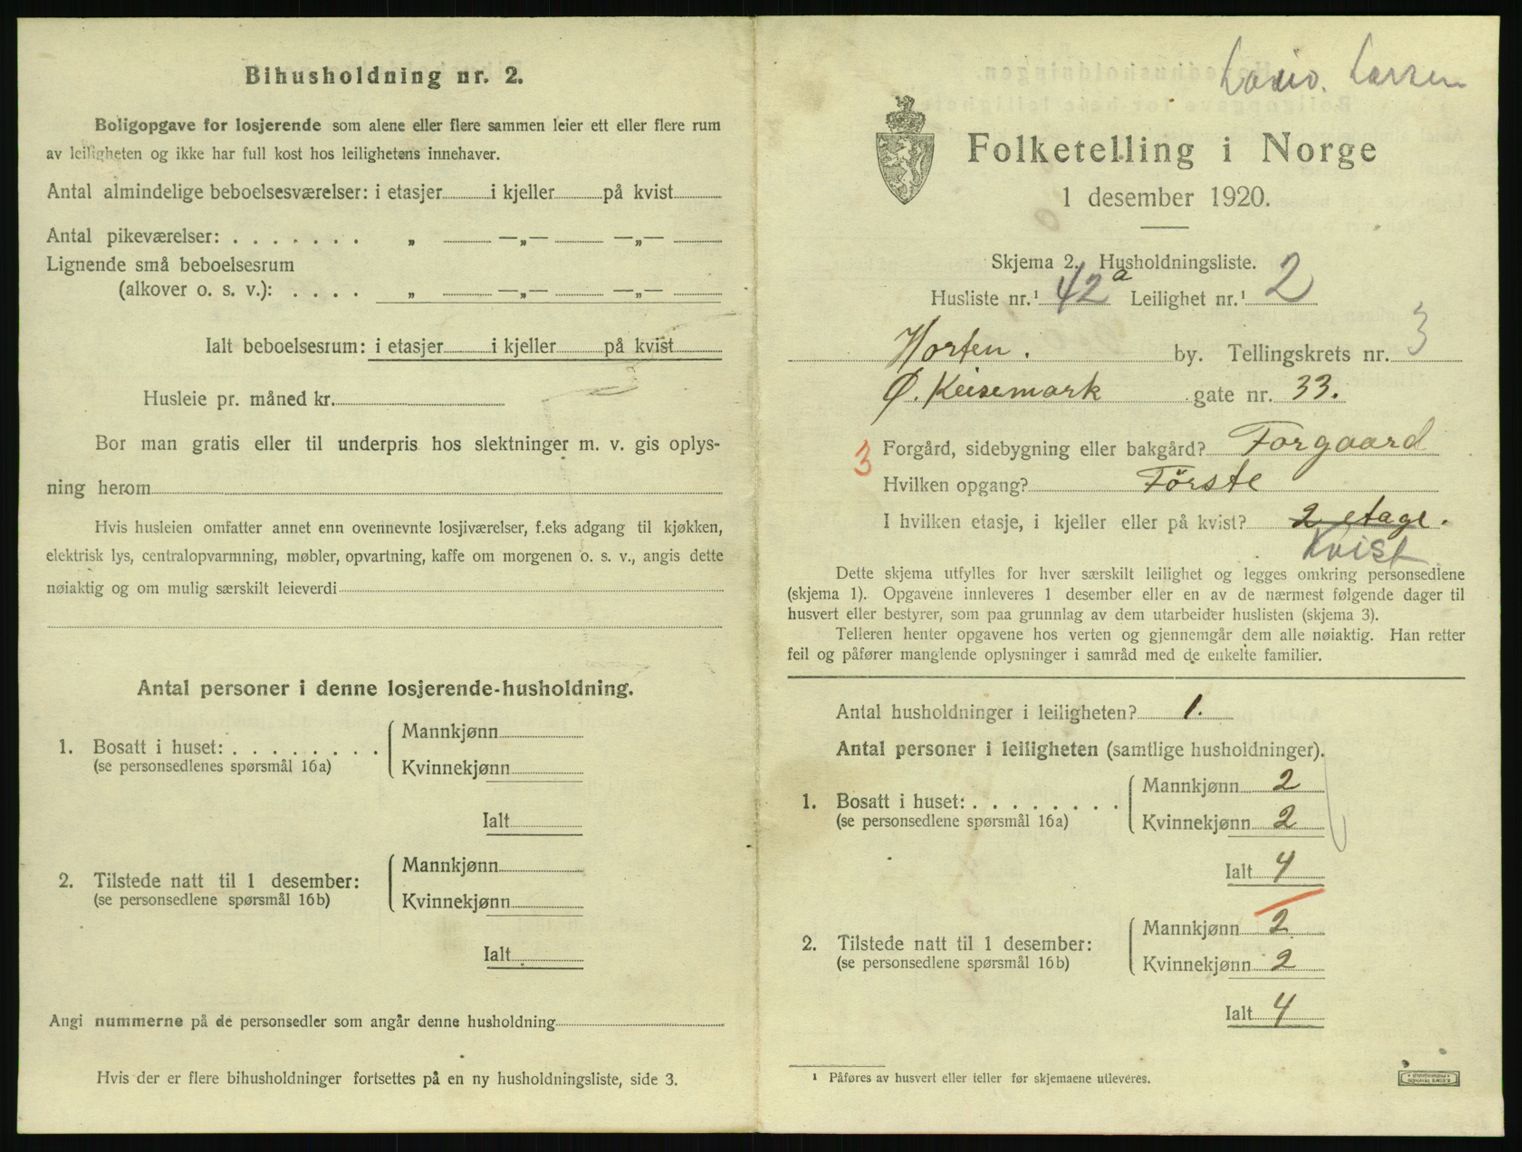 Bihusholdning nr. 2.
Boligopgave for losjerende som alene eller flere sammen leier ett eller flere rum
av leiligheten og ikke har full kost hos leilighetens innehaver.
Antal almindelige beboelsesværelser: i etasjer i kjeller på kvist
Antal pikeværelser: . . . . . . . „ —„— —„—
Lignende små beboelsesrum
(alkover o. s. v.): . . . . „ —„— —„—
Ialt beboelsesrum: i etasjer i kjeller på kvist
Husleie pr. måned kr.
Bor man gratis eller til underpris hos slektninger m. v. gis oplys-
ning herom
Hvis husleien omfatter annet enn ovennevnte losjiværelser, f.eks adgang til kjøkken,
elektrisk lys, centralopvarmning, møbler, opvartning, kaffe om morgenen o. s. v., angis dette
nøiaktig og om mulig særskilt leieverdi
Antal personer i denne losjerende-husholdning.
1. Bosatt i huset: . . . . . . . .
(se personsedlenes spørsmål 16a)
Mannkjønn
Kvinnekjønn
Ialt
2. Tilstede natt til 1 desember:
(se personsedlene spørsmål 16b)
Mannkjønn
Kvinnekjønn
Ialt
Angi nummerne på de personsedler som angår denne husholdning
Hvis der er flere bihusholdninger fortsettes på en ny husholdningsliste, side 3.
Larsen
Folketelling i Norge
1 desember 1920.
Skjema 2. Husholdningsliste.
Husliste nr.¹ 42a Leilighet nr.¹ 2
Horten. by. Tellingskrets nr. 3
Ø. Keisemark gate nr. 33.
3 Forgård, sidebygning eller bakgård? Forgaard
Hvilken opgang? Første
I hvilken etasje, i kjeller eller på kvist? 2 etage.
Kvist
Dette skjema utfylles for hver særskilt leilighet og legges omkring personsedlene
(skjema 1). Opgavene innleveres 1 desember eller en av de nærmest følgende dager til
husvert eller bestyrer, som paa grunnlag av dem utarbeider huslisten (skjema 3).
Telleren henter opgavene hos verten og gjennemgår dem alle nøiaktig. Han retter
feil og påfører manglende oplysninger i samråd med de enkelte familier.
Antal husholdninger i leiligheten? 1.
Antal personer i leiligheten (samtlige husholdninger).
1. Bosatt i huset: . . . . . . . .
(se personsedlene spørsmål 16a)
Mannkjønn 2
Kvinnekjønn 2
Ialt 4
2. Tilstede natt til 1 desember:
(se personsedlene spørsmål 16b)
Mannkjønn 2
Kvinnekjønn 2
Ialt 4
¹ Påføres av husvert eller teller før skjemaene utleveres.